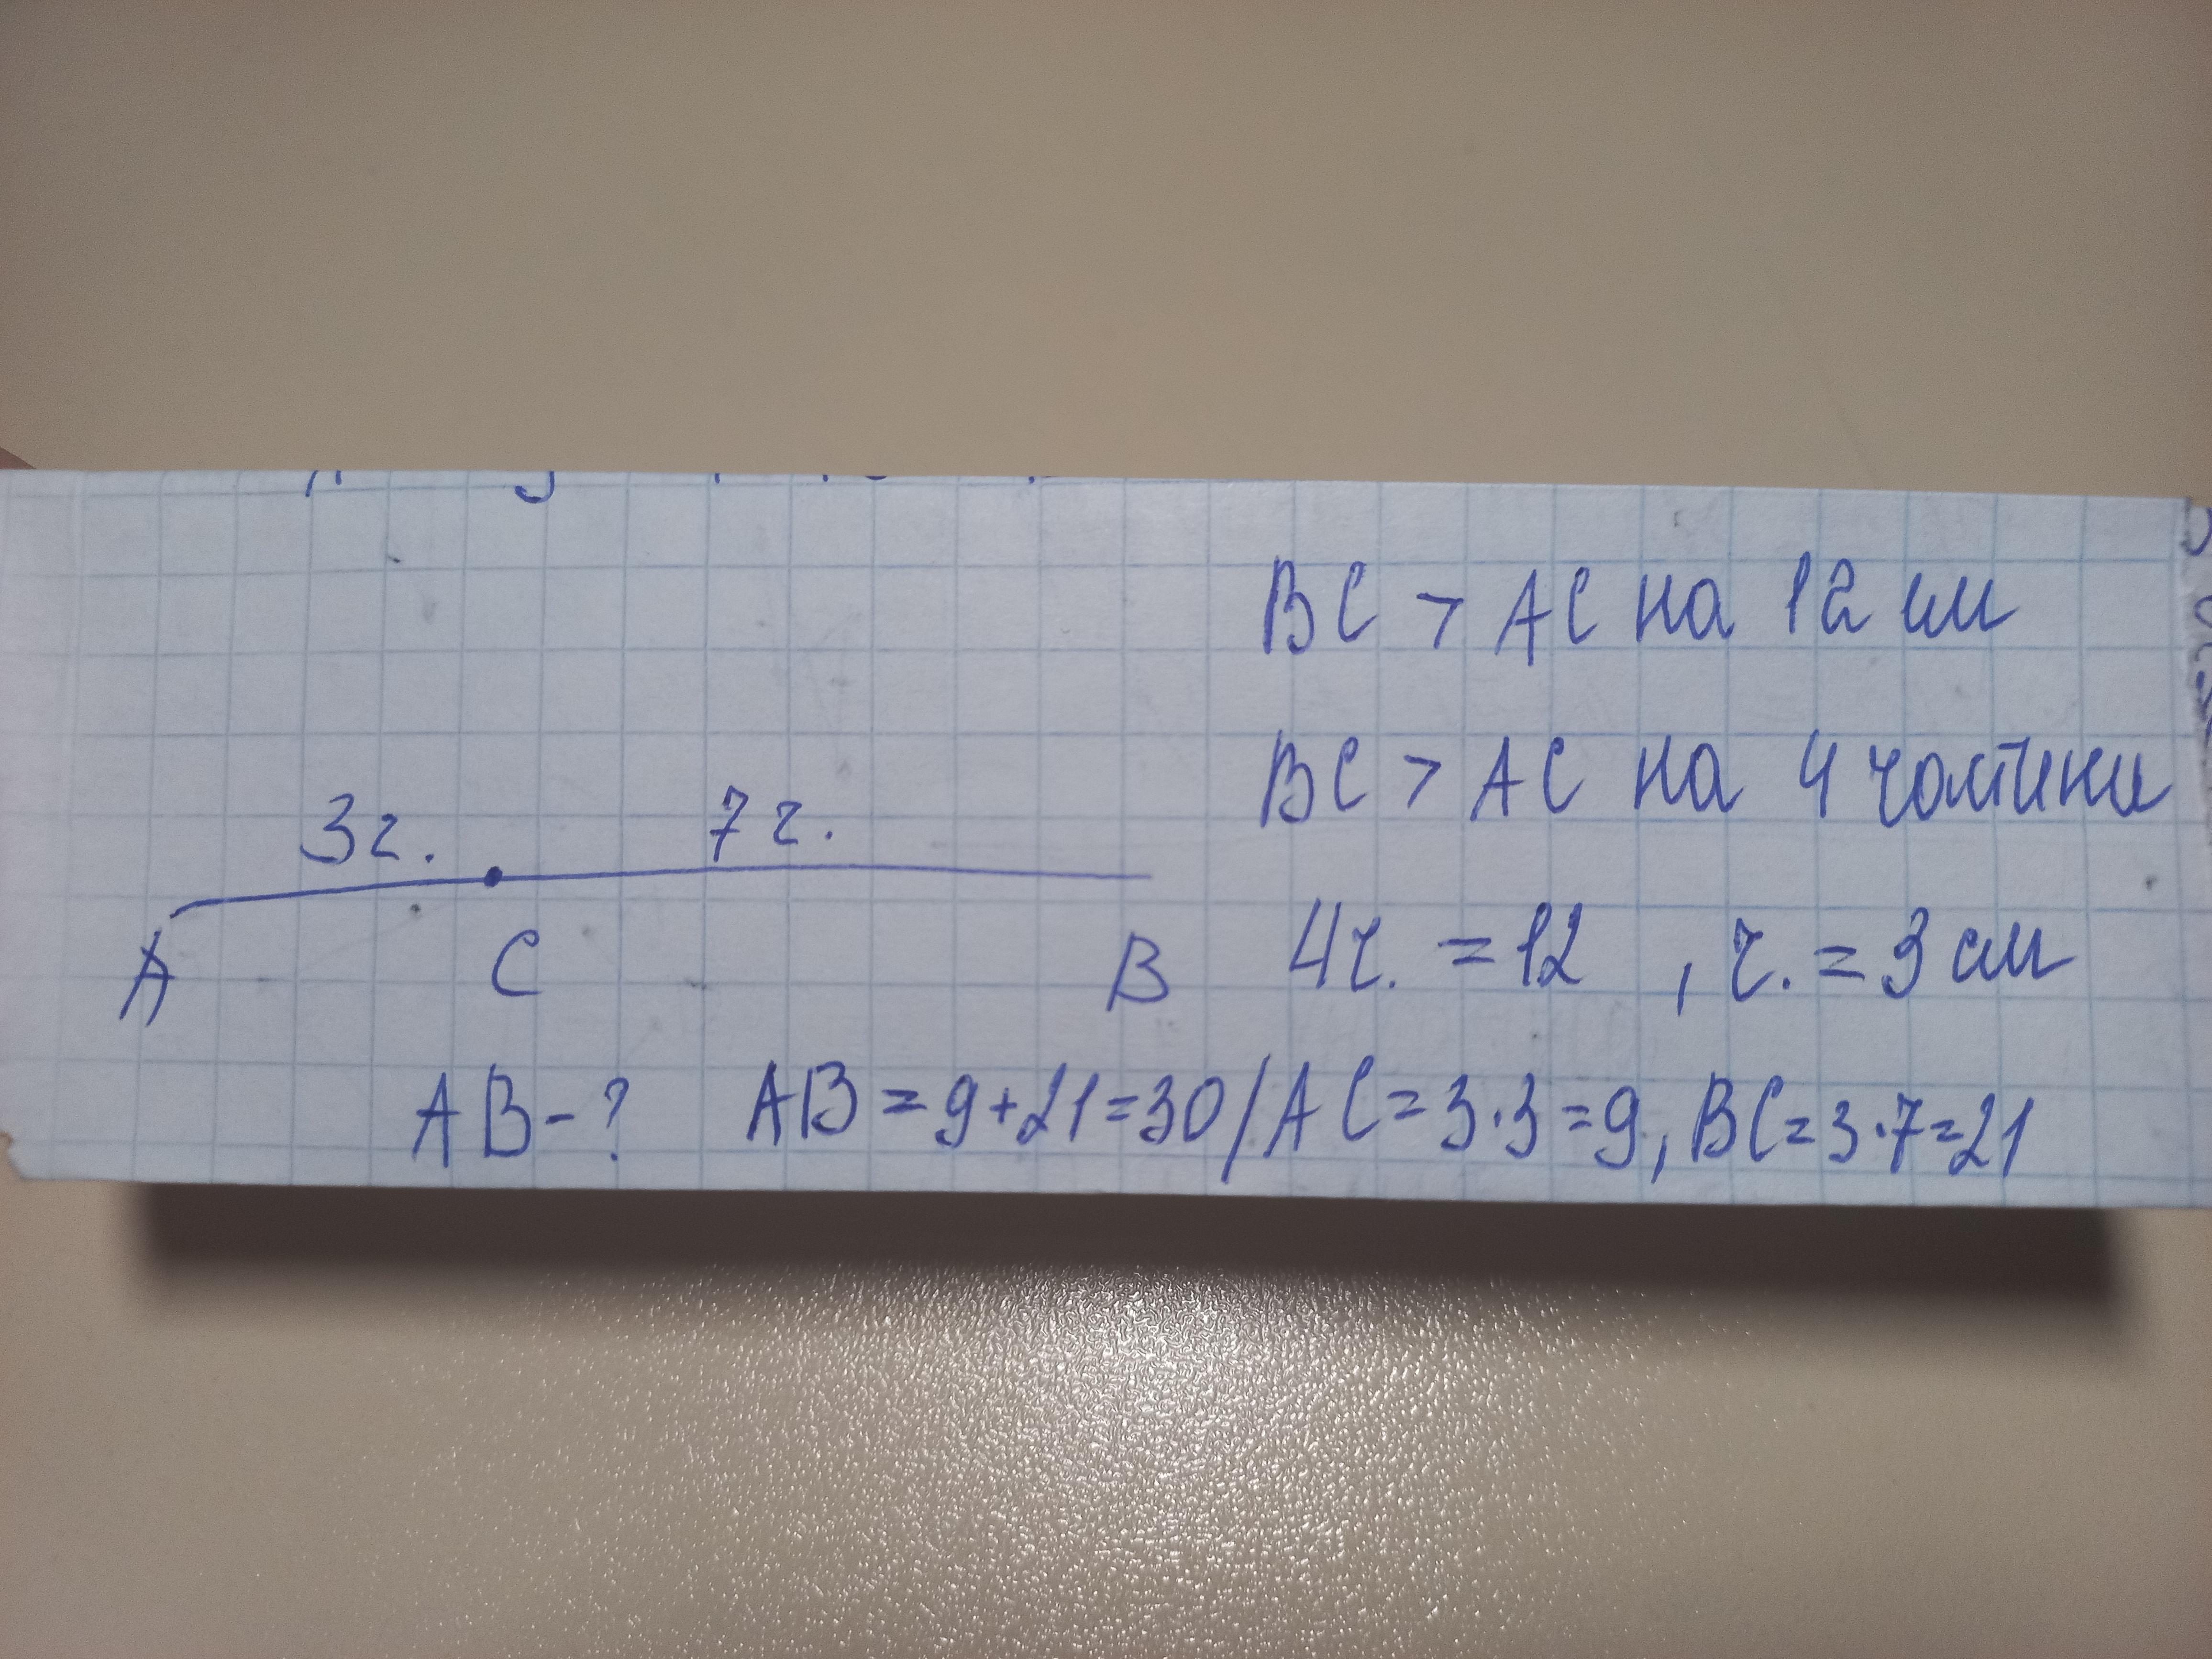 BC > AC на 12 см
BC > AC на 4 частини
3ч. 7ч.
A C B
4ч. = 12 , ч. = 3 см
AB - ? AB = 9+21=30 / AC = 3·3=9, BC = 3·7=21